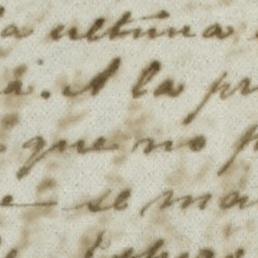 la ultima
a. A la pr
que no p
e se ma